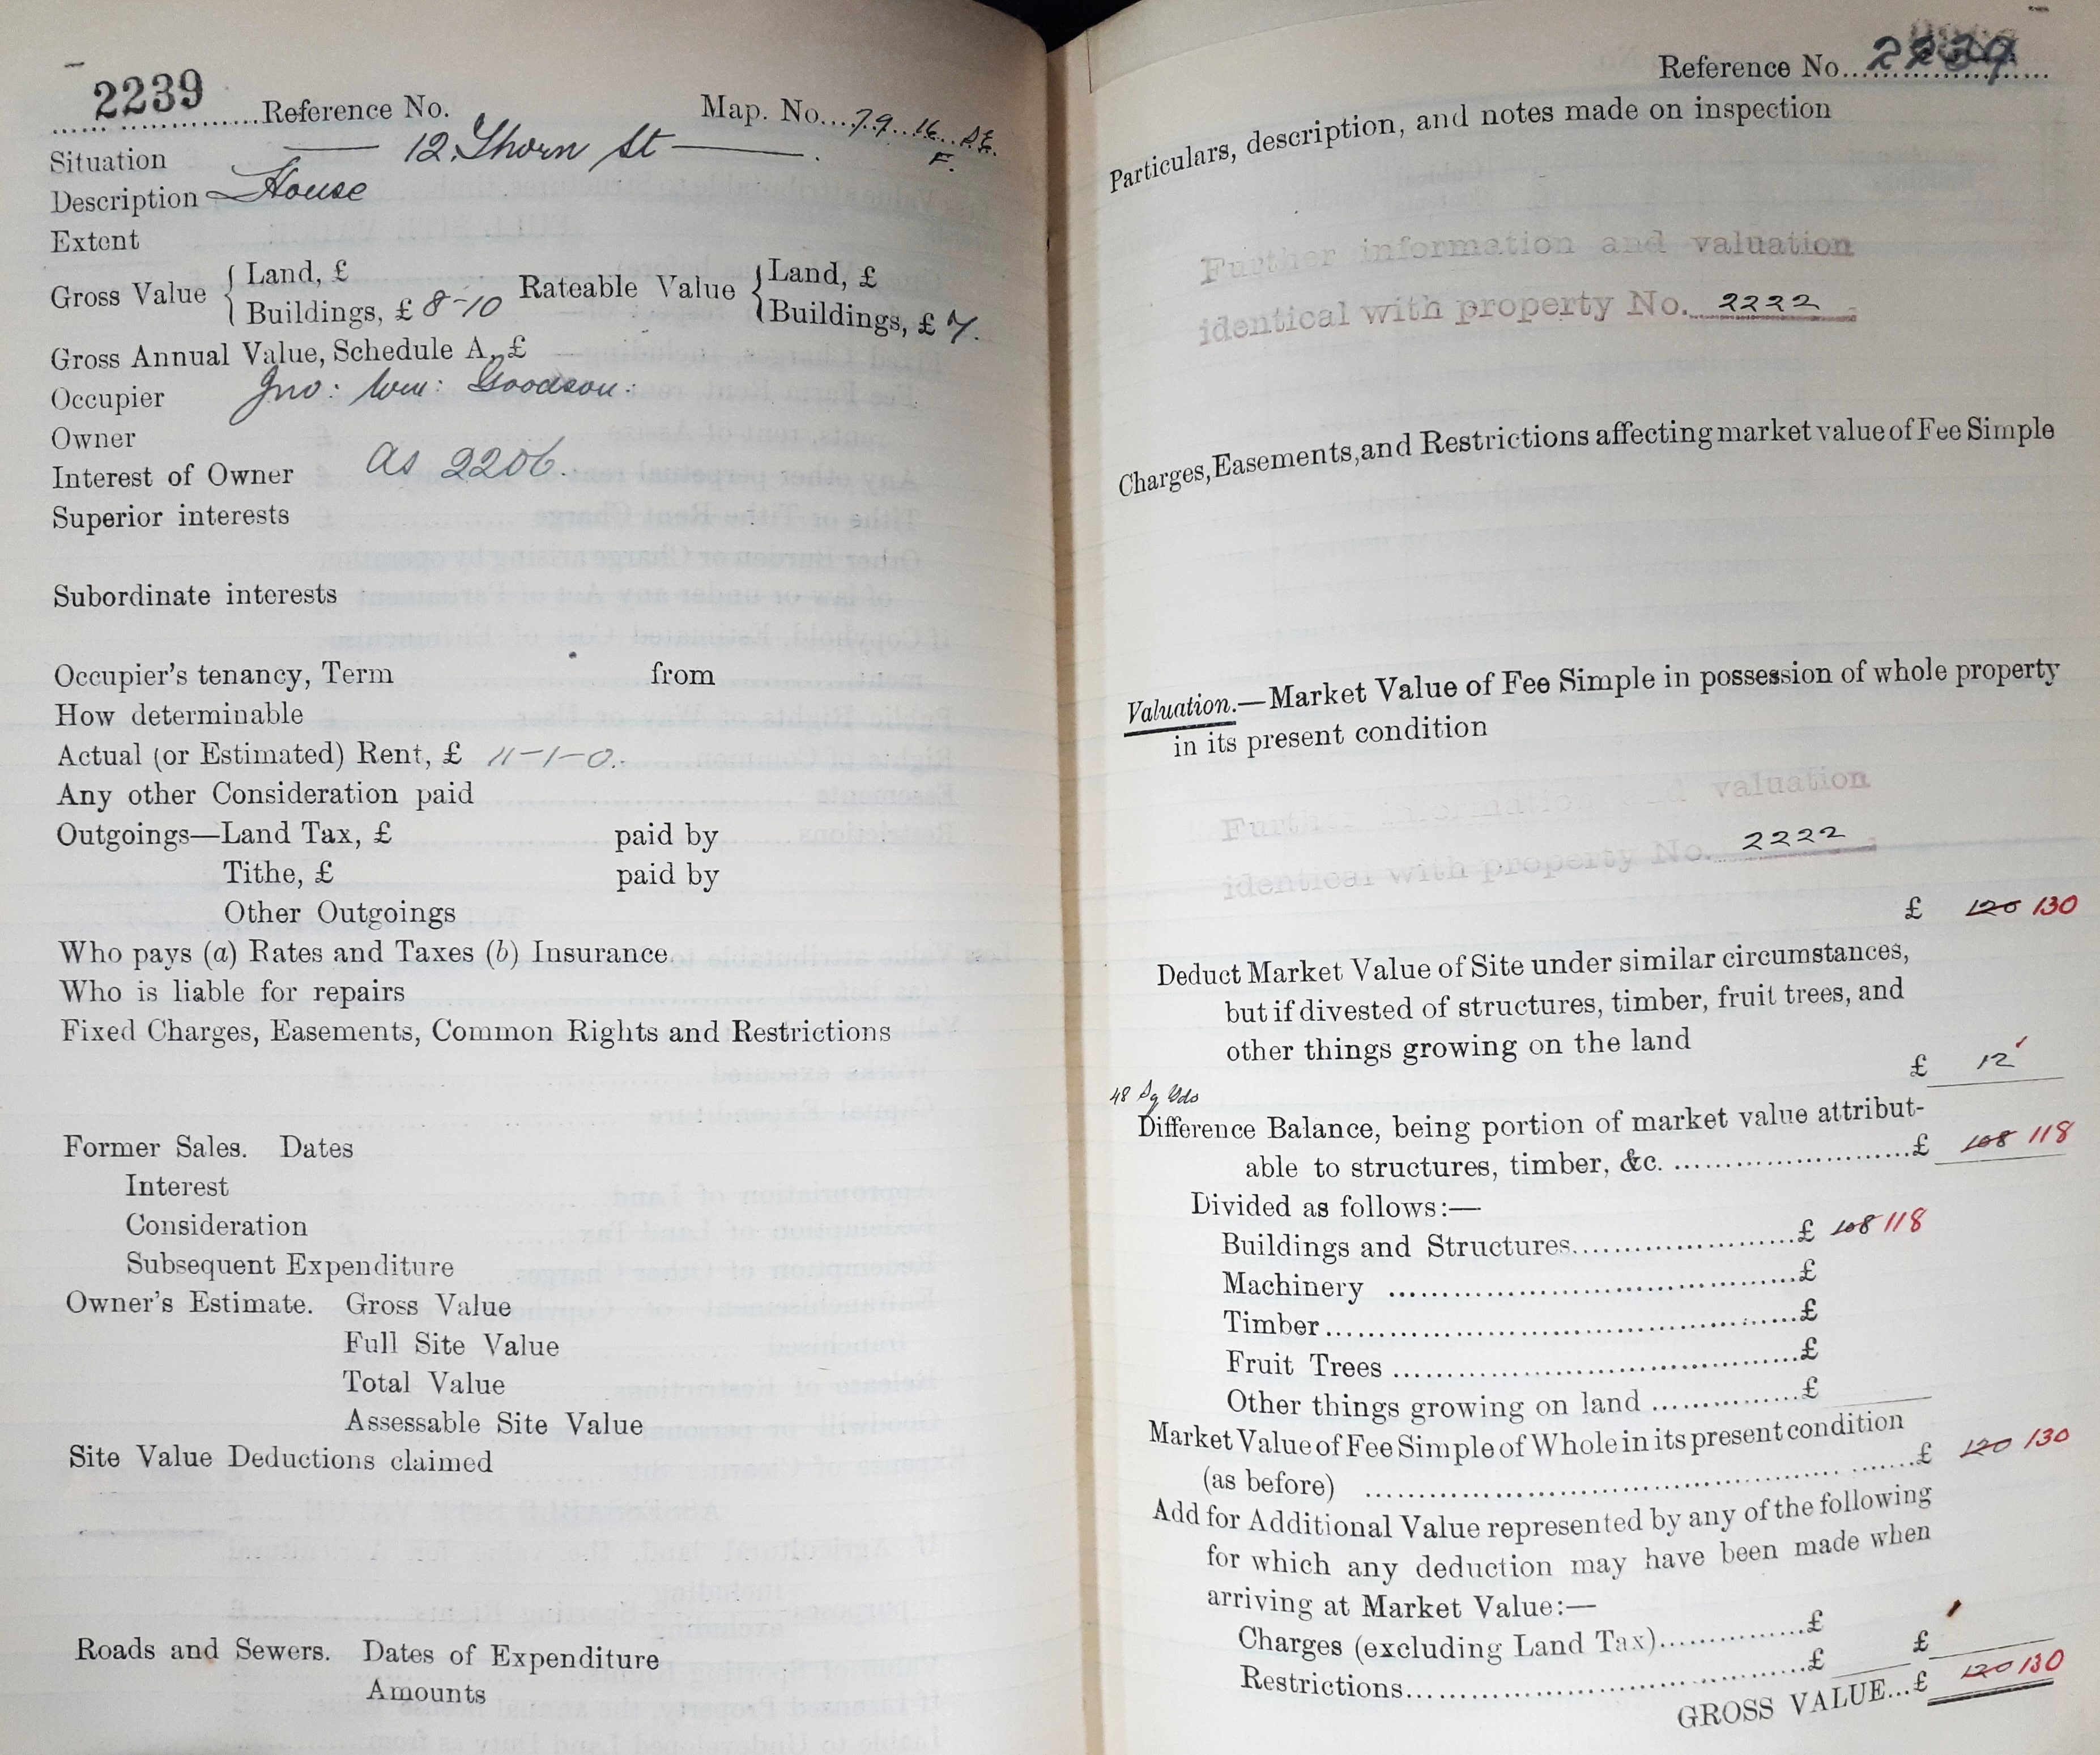 2239 Reference No. Map. No. 79. 16. S.E.
F.
Situation 12, Thorn St
Description House
Extent
Gross Value { Land, £ Rateable Value { Land, £
Buildings, £ 8-10 Buildings, £ 7.
Gross Annual Value, Schedule A, £
Occupier Jno: Wm: Goodson.
Owner
Interest of Owner As 2206.
Superior interests
Subordinate interests
Occupier's tenancy, Term from
How determinable
Actual (or Estimated) Rent, £ 11-1-0.
Any other Consideration paid
Outgoings—Land Tax, £ paid by
Tithe, £ paid by
Other Outgoings
Who pays (a) Rates and Taxes (b) Insurance
Who is liable for repairs
Fixed Charges, Easements, Common Rights and Restrictions
Former Sales. Dates
Interest
Consideration
Subsequent Expenditure
Owner's Estimate. Gross Value
Full Site Value
Total Value
Assessable Site Value
Site Value Deductions claimed
Roads and Sewers. Dates of Expenditure
Amounts
Reference No. 2239
Particulars, description, and notes made on inspection
Further information and valuation
identical with property No. 2222
Charges, Easements, and Restrictions affecting market value of Fee Simple
Valuation.—Market Value of Fee Simple in possession of whole property
in its present condition
Further information and valuation
identical with property No. 2222
£ 120 130
Deduct Market Value of Site under similar circumstances,
but if divested of structures, timber, fruit trees, and
other things growing on the land
£ 12
48 Sq Yds
Difference Balance, being portion of market value attribut-
able to structures, timber, &c. £ 108 118
Divided as follows:—
Buildings and Structures £ 108 118
Machinery £
Timber £
Fruit Trees £
Other things growing on land £
Market Value of Fee Simple of Whole in its present condition
(as before) £ 120 130
Add for Additional Value represented by any of the following
for which any deduction may have been made when
arriving at Market Value:—
Charges (excluding Land Tax) £
Restrictions £ £
GROSS VALUE...£ 120 130